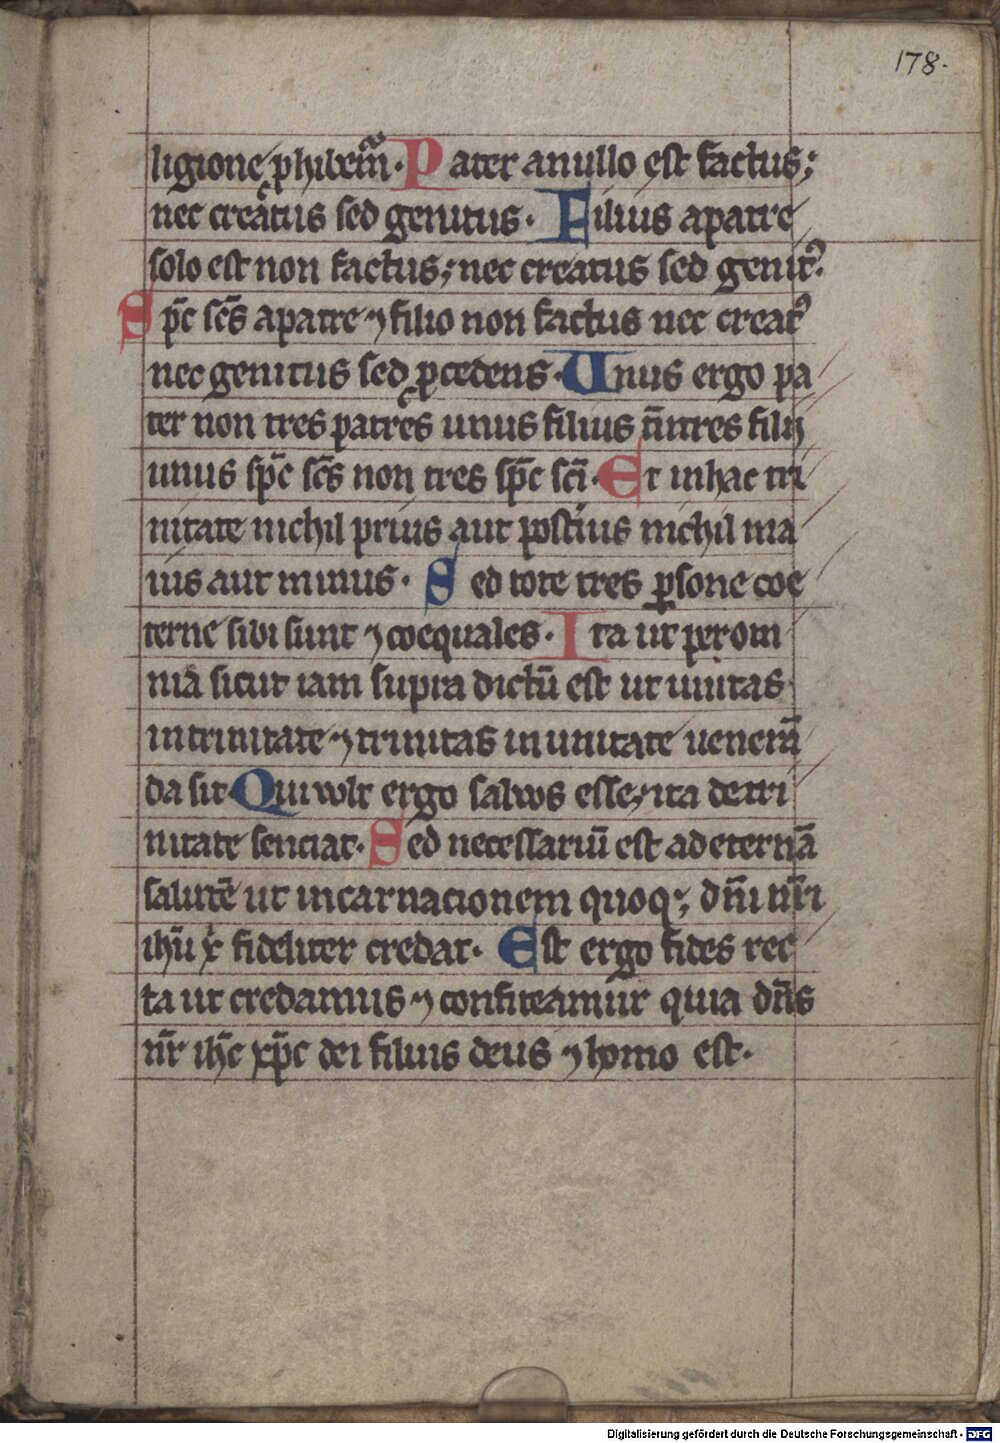 178.
ligione ꝓhibem̃ᷓ· Pater anullo est factus;
nec creatus sed genitus· Filius apatre
solo est non factus; nec creatus sed genitꝰ.
Sp̄c sc̄s apatre ⁊ filio non factus nec creatꝰ
nec genitus sed ꝓcedens· Unus ergo pa
ter non tres patres unus filius n̄ tres filij
unus sp̄c sc̄s non tres sp̄c sc̄i· Et inhac tri
nitate nichil prius aut postius nichil ma
ius aut minus· Sed tote tres ꝑsone coe
terne sibi sunt ⁊ coequales· Ita ut per om
nia sicut iam supra dictū est ut unitas
intrinitate ⁊ trinitas inunitate uenerā
da sit· Qui wlt ergo salwus esse; ita detri
nitate senciat· Sed necessariū est ad eternā
salutē ut incarnacionem quoq; dn̄i nr̄i
ihū xͥ fideliter credat· Est ergo fides rec
ta ut credamus ⁊ confiteamur quia dn̄s
nr̄ ih̄c xp̄c dei filius deus ⁊ homo est·
Digitalisierung gefördert durch die Deutsche Forschungsgemeinschaft - DFG